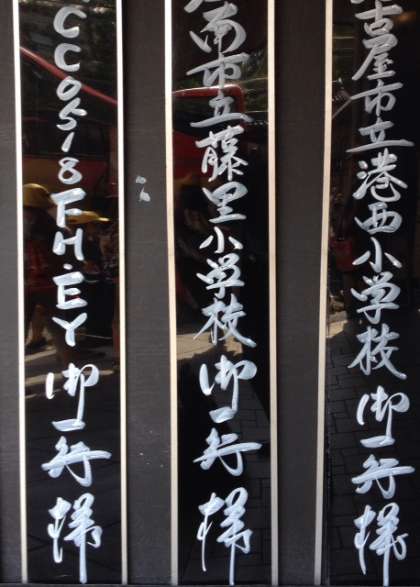 古屋市立港西小学校御一行様
南市立藤里小学校御一行様
CC0518FH.EY御一行様